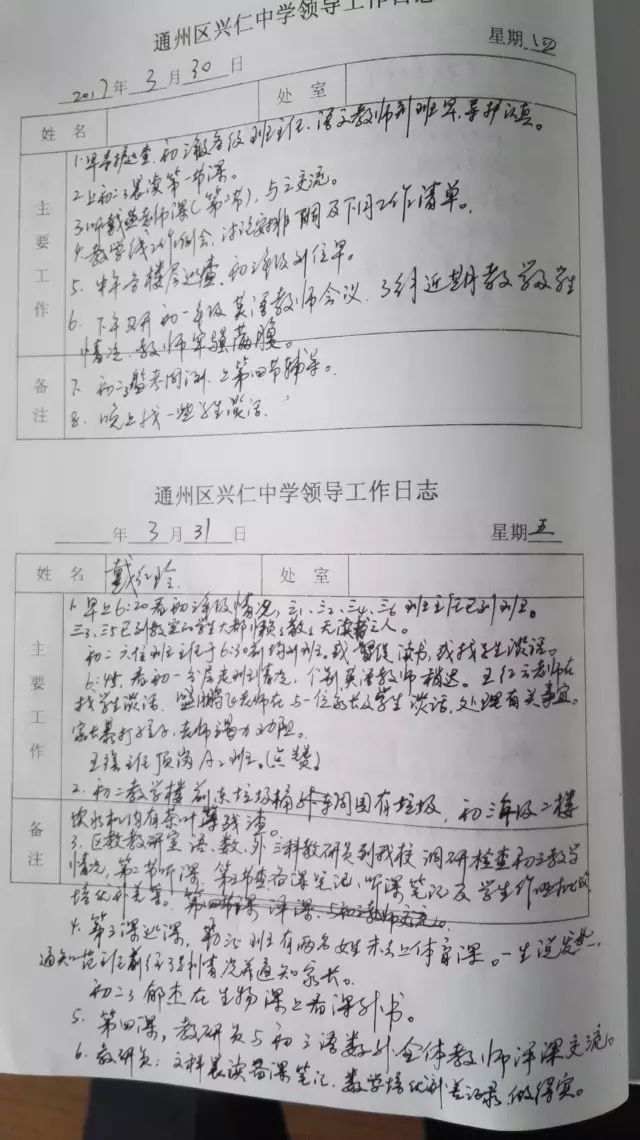 通州区兴仁中学领导工作日志
2017年 3 月 30 日 星期 四
姓 名 处 室
主要工作
1.早导护巡查,初三各年级班主任、语文教师到班早,导护认真。
2.上初二3晨读第一节课。
3.听老师课(第2节),与之交流。
4.教学线工作例会,讨论安排期间及下月工作清单。
5.中午各楼层巡查,初三年级到位早。
6.下午召开初一年级英语教师会议,了解近期教学及学生
情况,教师牢骚满腹。
备注
7.初二3监考周测,上第四节辅导。
8.晚上找一些学生谈话.
通州区兴仁中学领导工作日志
年 3 月 31 日 星期 五
姓 名 戴红 处 室
主要工作
1.早上6:20看初三年级情况,三1、三2、三4、三6班主任已到班。
三3、三5已到教室的学生大都,无读书之人。
初二六位班主任于6:30前均到班,我督促读书,我找学生谈话。
6:45,看初一各层走班情况,个别英语教师稍迟。王红云老师在
找学生谈话,盛鹏飞老师在与一位家长及学生谈话,处理有关事宜。
家长暴打孩子,老师竭力劝阻。
王班主任顶岗A2班。(点赞)
2.初二教学楼前东垃圾桶外周围有垃圾,初三年级二楼
饮水机均有茶叶残渣。
备注
3.区教教研室语、数、外三科教研员到我校调研检查初三教学
情况,第二节听课,第三节查备课笔记、听课笔记及学生作业批改、
培优补差等。第四节课评课,与初三教师交流。
4.第3课巡课,班有两名女生未去上体育课。一生说发,
通知班主任了解情况并通知家长。
初二3郁杰在生物课上看课外书。
5.第四课,教研员与初三语数外全体教师评课交流。
6.教研员:文科晨读备课笔记、数学培优补差记录做得实。